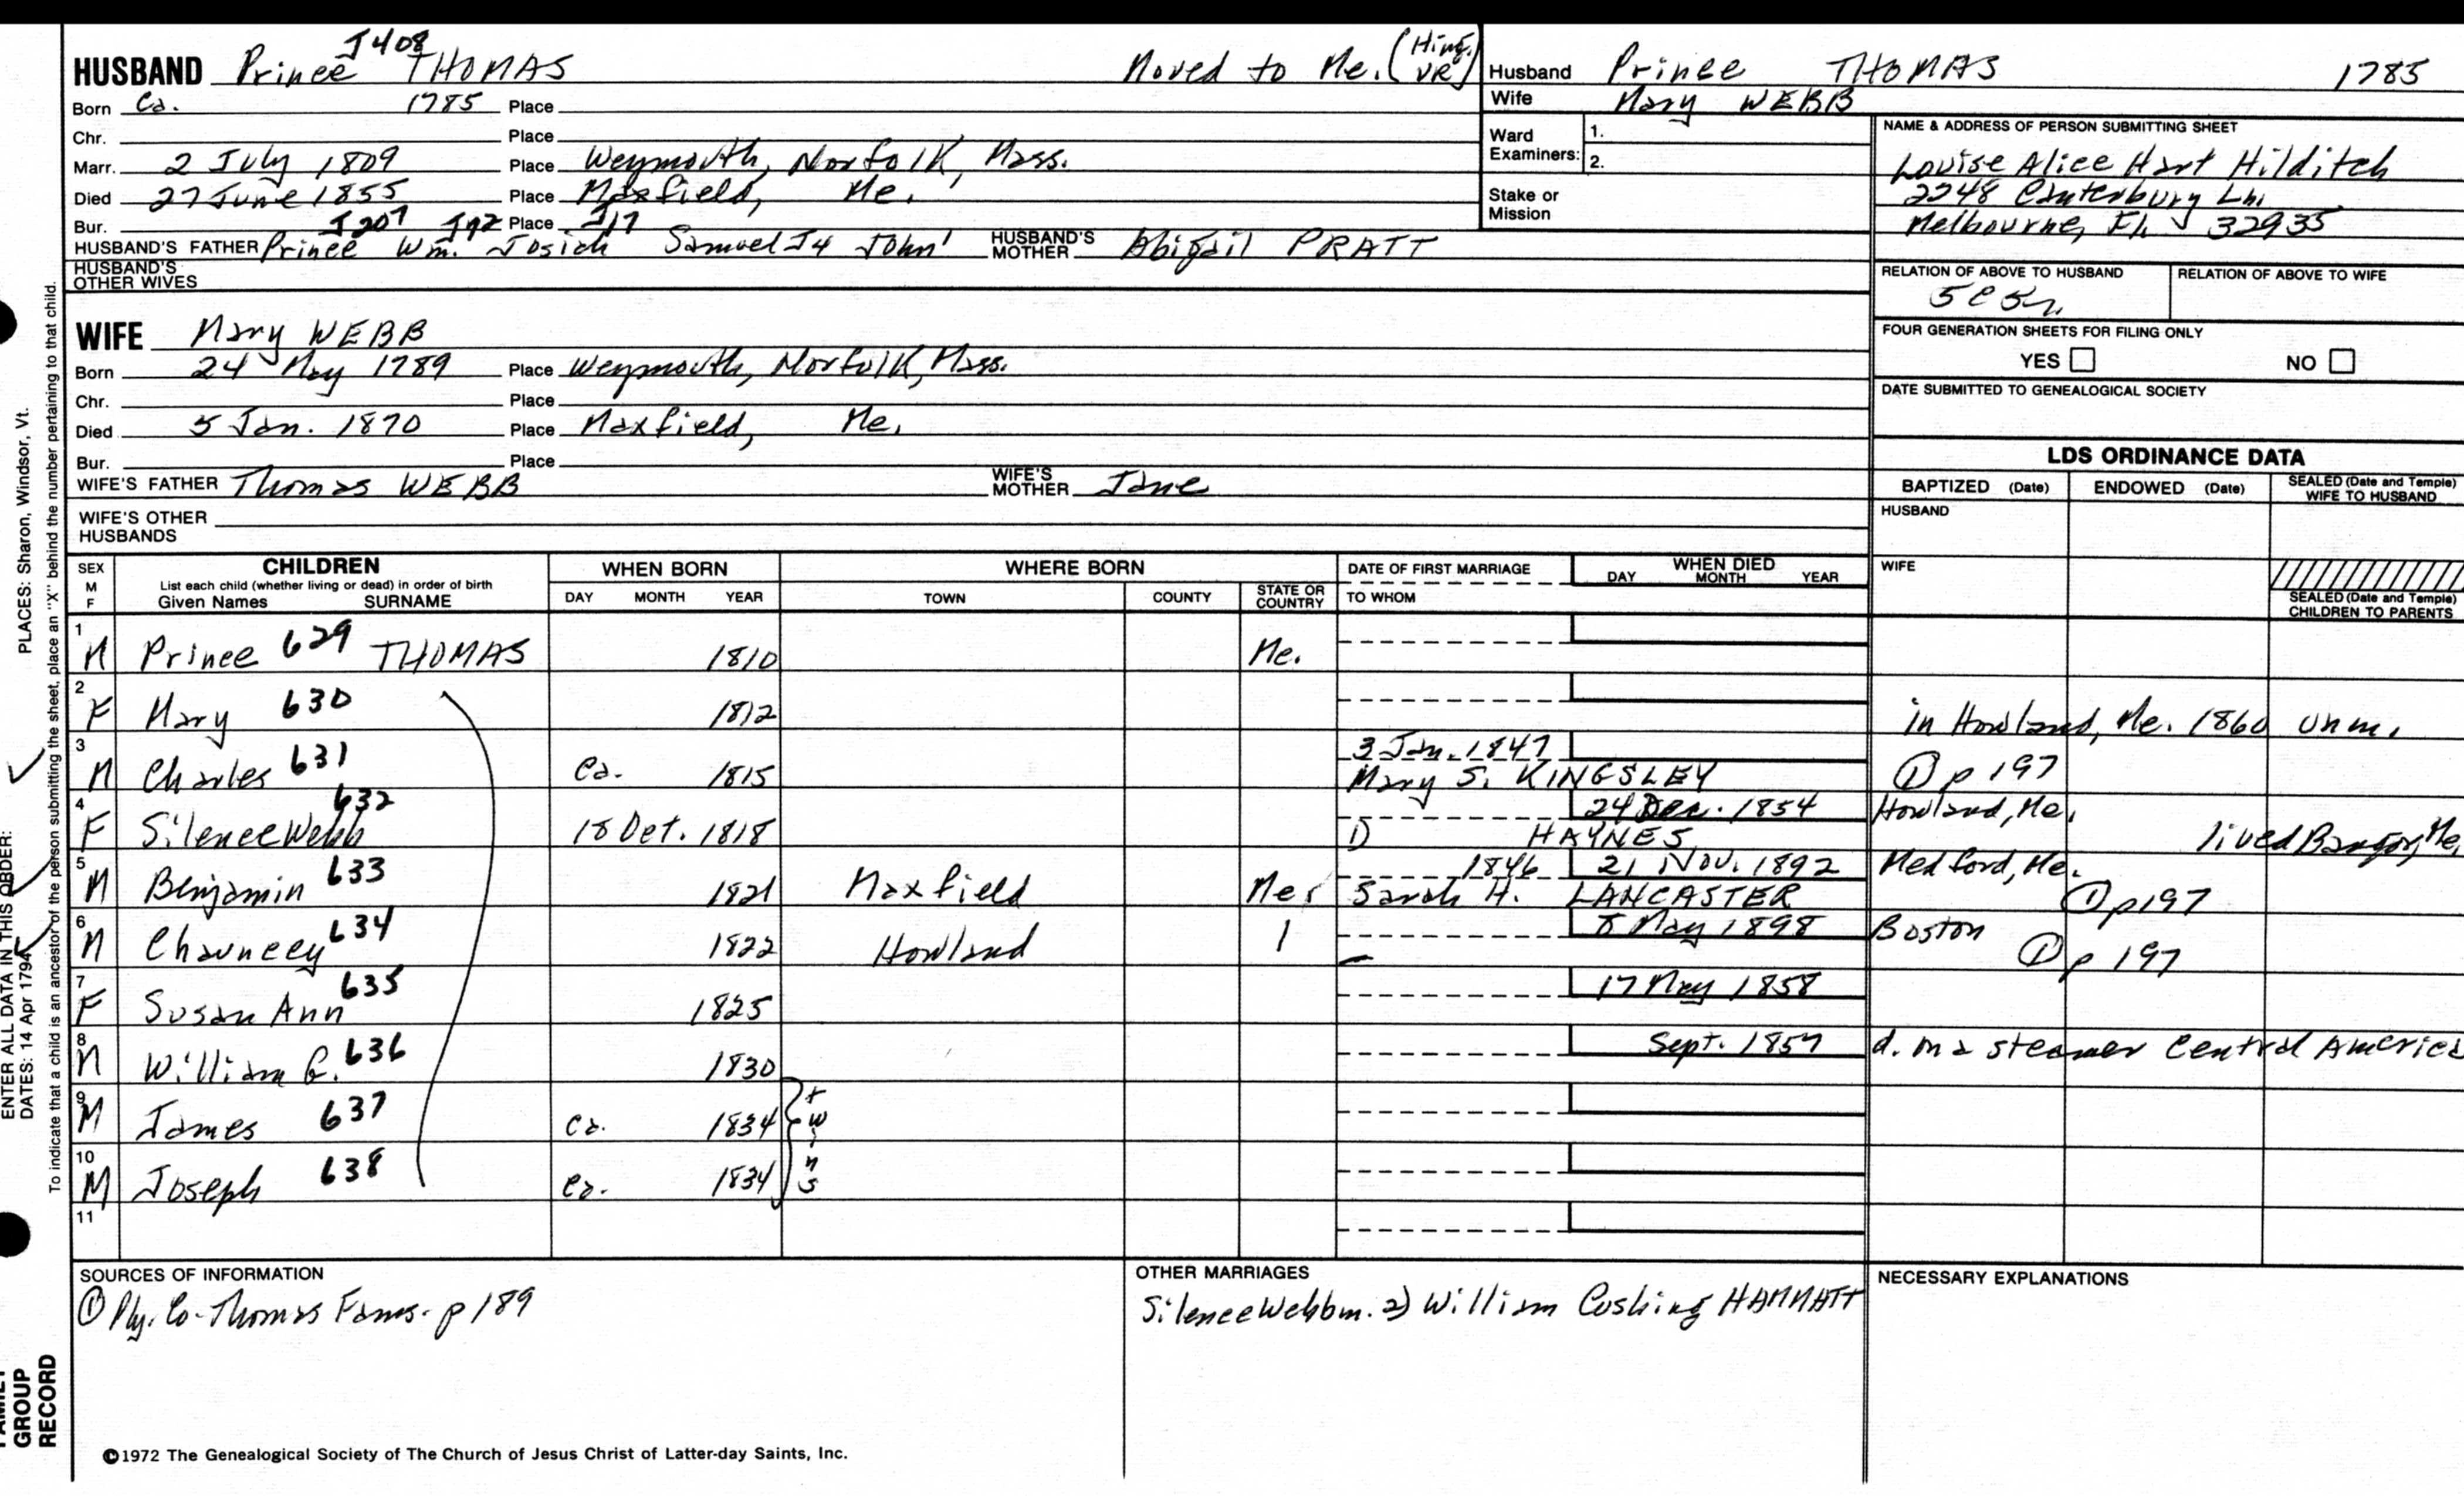 J408
HUSBAND Prince THOMAS Moved to Me. (Hing. VR)
Born Ca. 1785 Place
Chr. Place
Marr. 2 July 1809 Place Weymouth, Norfolk, Mass.
Died 27 June 1855 Place Maxfield, Me.
Bur. J207 J92 Place J17
HUSBAND'S FATHER Prince Wm. Josiah Samuel J4 John1 HUSBAND'S MOTHER Abigail PRATT
HUSBAND'S OTHER WIVES
WIFE Mary WEBB
Born 24 May 1789 Place Weymouth, Norfolk, Mass.
Chr. Place
Died 5 Jan. 1870 Place Maxfield, Me.
Bur. Place
WIFE'S FATHER Thomas WEBB WIFE'S MOTHER Jane
WIFE'S OTHER HUSBANDS
Husband Prince THOMAS 1785
Wife Mary WEBB
Ward Examiners: 1.
2.
Stake or Mission
NAME & ADDRESS OF PERSON SUBMITTING SHEET
Louise Alice Hart Hilditch
2248 Canterbury Ln.
Melbourne, FL 32935
RELATION OF ABOVE TO HUSBAND RELATION OF ABOVE TO WIFE
5C5r.
FOUR GENERATION SHEETS FOR FILING ONLY
YES NO
DATE SUBMITTED TO GENEALOGICAL SOCIETY
LDS ORDINANCE DATA
BAPTIZED (Date) ENDOWED (Date) SEALED (Date and Temple) WIFE TO HUSBAND
HUSBAND
WIFE
SEALED (Date and Temple) CHILDREN TO PARENTS
SEX M F CHILDREN WHEN BORN WHERE BORN DATE OF FIRST MARRIAGE WHEN DIED
List each child (whether living or dead) in order of birth
Given Names SURNAME DAY MONTH YEAR TOWN COUNTY STATE OR COUNTRY TO WHOM DAY MONTH YEAR
1 M Prince 629 THOMAS 1810 Me.
2 F Mary 630 1812 in Howland, Me. 1860 unm.
3 M Charles 631 Ca. 1815 3 Jan. 1847 Mary S. KINGSLEY ① p 197
4 F Silence Webb 632 18 Oct. 1818 24 Dec. 1854 1) HAYNES Howland, Me. lived Bangor, Me.
5 M Benjamin 633 1821 Maxfield Me. 1846 21 Nov. 1892 Sarah H. LANCASTER Medford, Me. ① p197
6 M Chauncey 634 1822 Howland 8 May 1898 Boston ① p 197
7 F Susan Ann 635 1825 17 May 1858
8 M William 636 1830 Sept. 1857 d. on a steamer Central America
9 M James 637 ca. 1834 twins
10 M Joseph 638 ca. 1834
11
SOURCES OF INFORMATION
① Ply. Co. Thomas Fams. p 189
OTHER MARRIAGES
Silence Webb m. 2) William Cushing HAMMATT
NECESSARY EXPLANATIONS
©1972 The Genealogical Society of The Church of Jesus Christ of Latter-day Saints, Inc.
PLACES: Sharon, Windsor, Vt.
ENTER ALL DATA IN THIS ORDER:
DATES: 14 Apr 1794
To indicate that a child is an ancestor of the person submitting the sheet, place an "X" behind the number pertaining to that child.
FAMILY
GROUP
RECORD